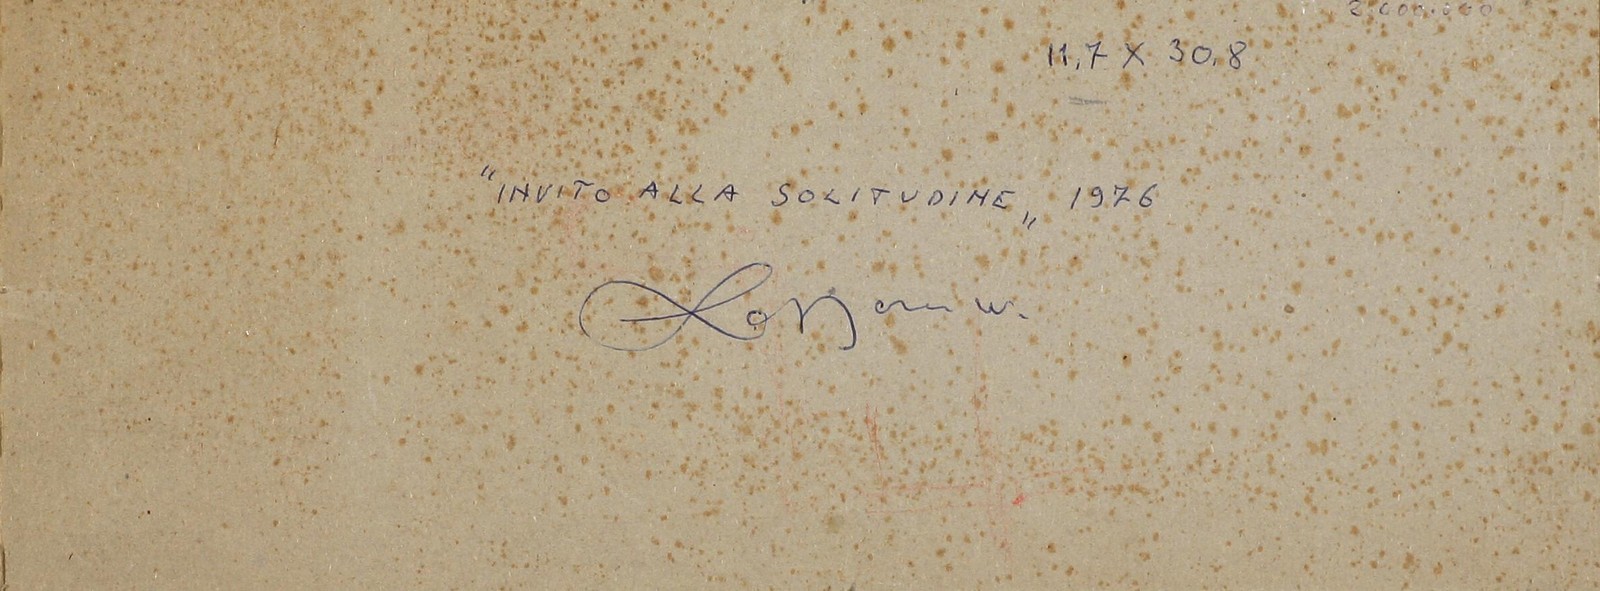 2.000.000
11.7 X 30.8
"INVITO ALLA SOLITUDINE„ 1976